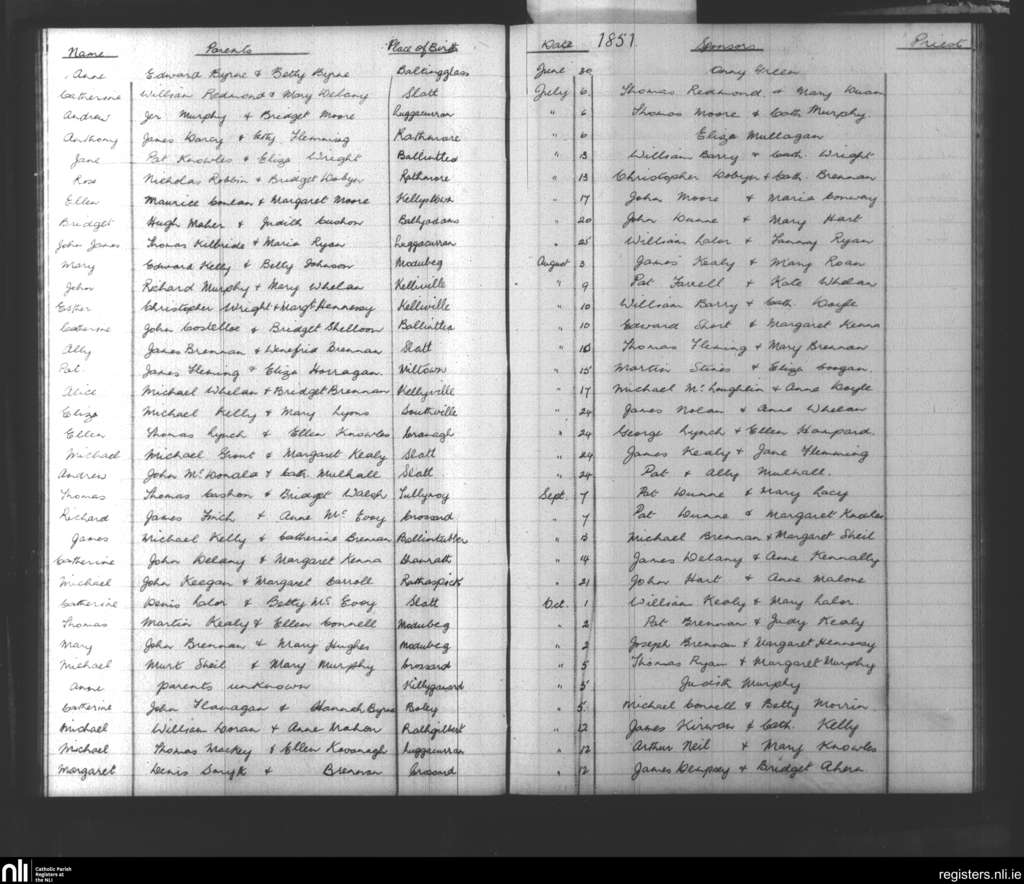 Name Parents Place of Birth Date 1851 Sponsors Priest
Anne Edward Byrne & Betty Byrne Baltingglass June 30 Green
Catherine William Redmond & Mary Delany Slatt July 6 Thomas Redmond & Mary
Andrew Jer Murphy & Bridget Moore Luggacurran " 6 Thomas Moore & Cath. Murphy
Anthony James Darcy & Cathy Flemming Rathmore " 6 Eliza Mullagan
Jane Pat Knowles & Eliza Wright Ballintlea " 13 William Barry & Cath. Wright
Rose Nicholas Robbin & Bridget Dobyn Rathmore " 13 Christopher Dobyn & Cath. Brennan
Ellen Maurice Conlan & Margaret Moore Kellystown " 17 John Moore & Maria Conway
Bridget Hugh Maher & Judith Cushon Ballyadams " 20 John Dunne & Mary Hart
John James Thomas Kilbride & Maria Ryan Luggacurran " 25 William Lalor & Fanny Ryan
Mary Edward Kelly & Betty Johnson Modubeg August 3 James Kealy & Mary Roan
John Richard Murphy & Mary Whelan Kellville " 9 Pat Farrell & Kate Whelan
Esther Christopher Wright & Margt Hennessy Kellville " 10 William Barry & Cath. Doyle
Catherine John Costelloe & Bridget Shelloon Ballintlea " 10 Edward Short & Margaret Kenna
Ally James Brennan & Winefrid Brennan Slatt " 10 Thomas Fleming & Mary Brennan
Pat James Fleming & Eliza Horragan Viltown " 15 Martin & Eliza Coogan.
Alice Michael Whelan & Bridget Brennan Kellyville " 17 Michael McLoughlin & Anne Doyle
Eliza Michael Kelly & Mary Lyons Southville " 24 James Nolan & Anne Whelan
Ellen Thomas Lynch & Ellen Knowles Cranagh " 24 George Lynch & Ellen
Michael Michael Grant & Margaret Kealy Slatt " 24 James Kealy & Jane Flemming
Andrew John McDonald & Cath. Mulhall Slatt " 24 Pat & Ally Mulhall.
Thomas Thomas Cashon & Bridget Walsh Tullyroy Sept. 7 Pat Dunne & Mary Lacy
Richard James Finch & Anne McEvoy Crossard " 7 Pat Dunne & Margaret Knowles
James Michael Kelly & Catherine Brennan " 13 Michael Brennan & Margaret Sheil
Catherine John Delany & Margaret Kenna Shanrath " 14 James Delany & Anne Kennally
Michael John Keegan & Margaret Carroll Rathaspick " 21 John Hart & Anne Malone
Catherine Denis Lalor & Betty McEvoy Slatt Oct. 1 William Kealy & Mary Lalor.
Thomas Martin Kealy & Ellen Connell Modubeg " 2 Pat Brennan & Judy Kealy
Mary John Brennan & Mary Hughes Modubeg " 2 Joseph Brennan & Margaret Hennessy
Michael Murt Sheil & Mary Murphy Crossard " 5 Thomas Ryan & Margaret Murphy
Anne parents unknown " 5 Judith Murphy
Catherine John Flanagan & Hannah Byrne Boley " 5 Michael Connell & Betty Morrin
Michael William Doran & Anne Mahon Rathgilbert " 12 James Kirwan & Cath. Kelly
Michael Thomas Mackey & Ellen Kavanagh Luggacurran " 12 Arthur Neil & Mary Knowles
Margaret Denis Smyth & Brennan Crossard " 12 James Dempsey & Bridget Ahern
nli Catholic Parish Registers at the NLI registers.nli.ie